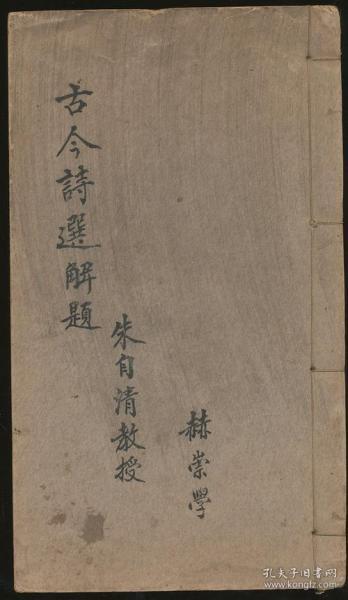 古今詩選解題
朱自清教授
赫崇學
孔夫子旧书网
www.kongfz.com